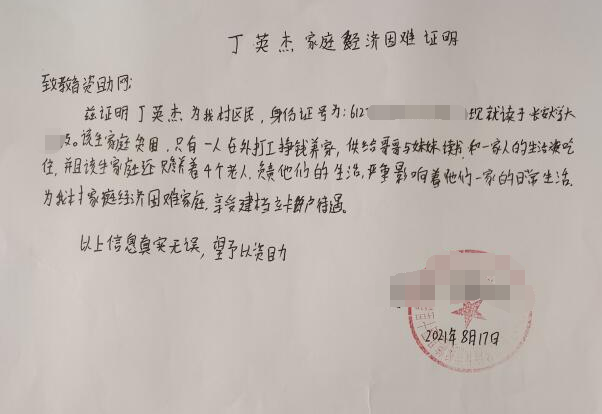 丁英杰家庭经济困难证明
致教育资助网:
兹证明丁英杰为我村区民,身份证号为:612 现就读于长软大
该生家庭贫困,只有一人在外打工挣钱养家,供给哥哥与妹妹读书和一家人的生活费吃
住,并且该生家庭还赡养着4个老人,负责他们的生活,严重影响着他们一家的日常生活,
为我村家庭经济困难家庭,享受建档立卡户待遇。
以上信息真实无误,望予以资助
2021年8月17日